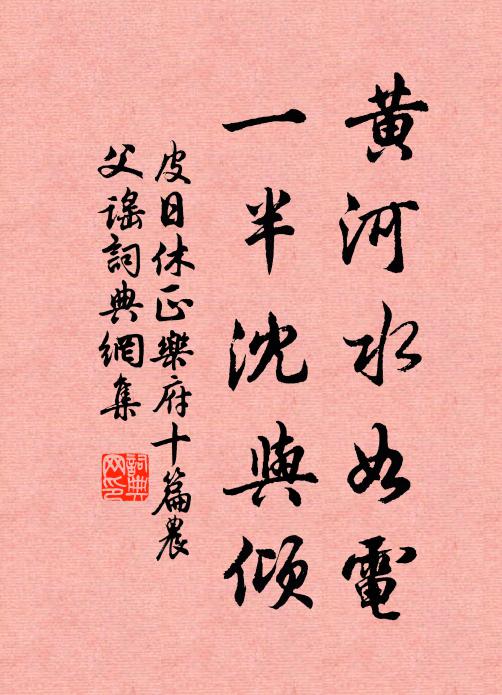 黄河水如電
一半沈與傾
皮日休正樂府十篇農
父謠詞典網集
詞典
网印